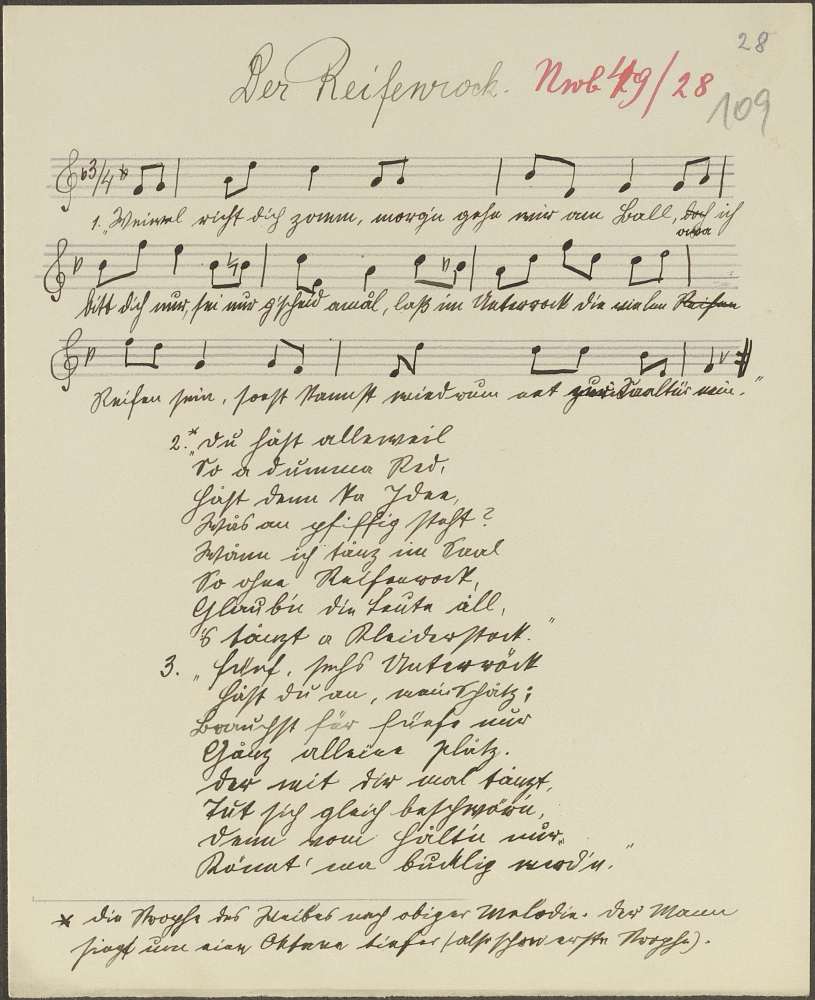 28
Der Reifenrock. Nwb 49/28
109
3/4
1. "Weiwal richt dich zomm, morg'n gehn wir am Ball, doch ich
owa
bitt dich nur, sei nur g'scheid amål, laß im Unterrock die vielen Reifen
Reifen sein, sonst kannst wiedrum net zur Saaltür nein."
2.* "Du håst alleweil
So a dumma Red,
Håst denn ka Idee,
Wås an pfiffig steht?
Wånn ich tånz im Saal
So ohne Reifenrock,
Glaub'n die Leute åll,
's tånzt a Kleiderstock."
3. "Fünf, sechs Unterröck
Håst du an, mein Schåtz;
Brauchst für fünfe nur
Gånz alleine Plåtz.
Der mit dir mal tånzt,
Tut sich gleich beschwörn,
Denn vom Hålt'n nur
Könnt' ma bucklig werd'n."
* Die Strophe des Weibes nach obiger Melodie. Der Mann
singt um eine Oktave tiefer (also schon erste Strophe).